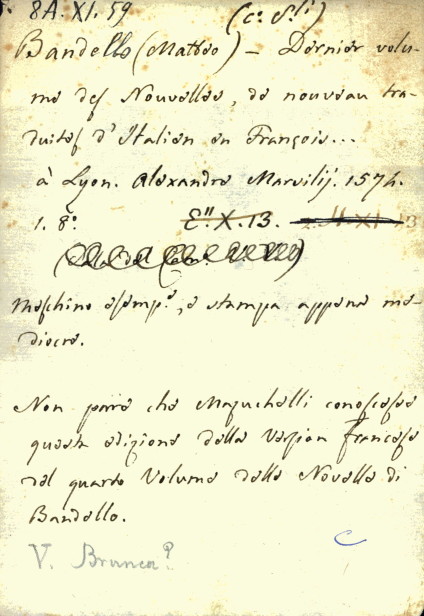 8A. XI. 59
(c. S.li)
Bandello (Matteo) – Dernier volu-
me des Nouvelles, de nouveau tra-
duites d'Italien en François...
à Lyon. Alexandre Marsilij. 1574.
1. 8.° E.II X. 13.
Meschino esemp.e, e stampa appena me-
diocre.
Non pare che Mazuchelli conoscesse
questa edizione della version francese
del quarto Volume delle Novelle di
Bandello.
V. Brunea?
C